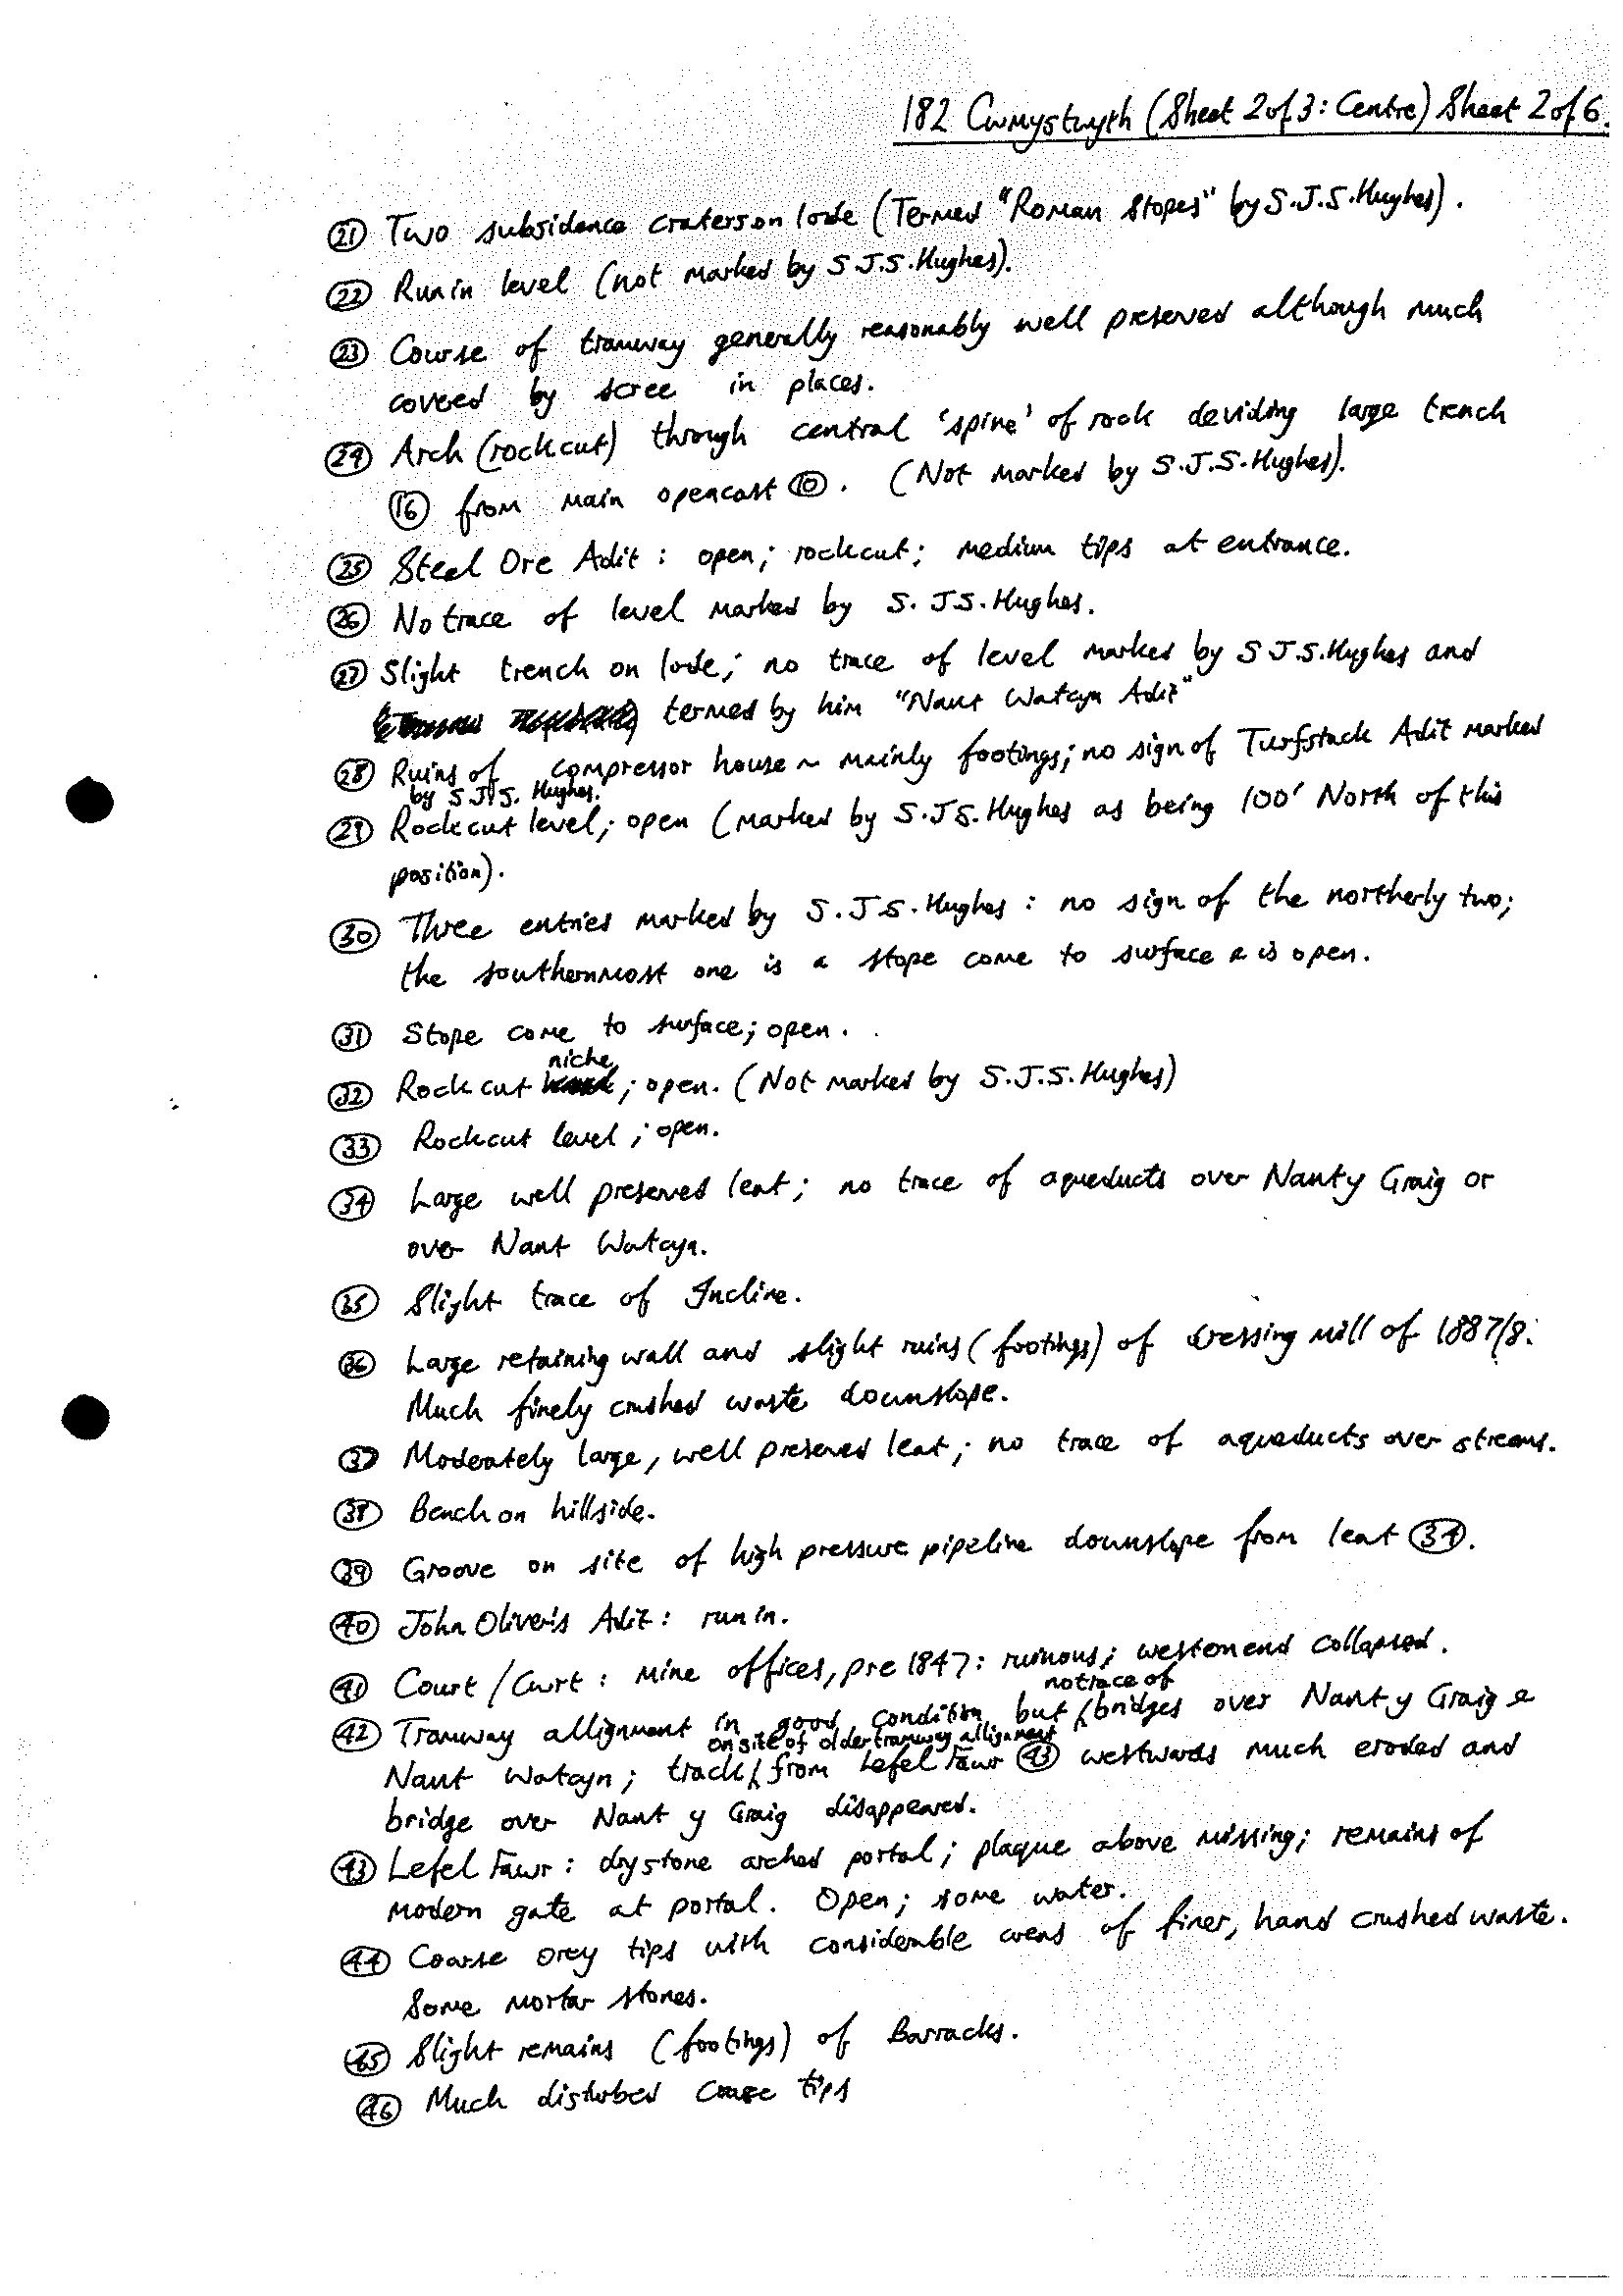 182 Cwmystwyth (Sheet 2 of 3: Centre) Sheet 2 of 6.
21 Two subsidence craters on lode (Termed "Roman Stopes" by S.J.S. Hughes).
22 Run in level (not marked by S.J.S. Hughes).
23 Course of tramway generally reasonably well preserved although much
covered by scree in places.
24 Arch (rockcut) through central 'spine' of rock deviding large trench
16 from main opencast 10. (Not marked by S.J.S. Hughes).
25 Steel Ore Adit: open; rockcut; medium tips at entrance.
26 No trace of level marked by S.J.S. Hughes.
27 Slight trench on lode; no trace of level marked by S.J.S. Hughes and
termed by him "Nant Watcyn Adit"
28 Ruins of compressor house ~ mainly footings; no sign of Turfstack Adit marked
by S.J.S. Hughes.
29 Rockcut level; open (marked by S.J.S. Hughes as being 100' North of this
position).
30 Three entries marked by S.J.S. Hughes: no sign of the northerly two;
the southernmost one is a stope come to surface & is open.
31 Stope come to surface; open.
32 Rockcut niche; open. (Not marked by S.J.S. Hughes)
33 Rockcut level; open.
34 Large well preserved leat; no trace of aqueducts over Nant y Graig or
over Nant Watcyn.
35 Slight trace of Incline.
36 Large retaining wall and slight ruins (footings) of dressing mill of 1887/8.
Much finely crushed waste downslope.
37 Moderately large, well preserved leat; no trace of aqueducts over streams.
38 Bench on hillside.
39 Groove on site of high pressure pipeline downslope from leat 34.
40 John Oliver's Adit: run in.
41 Court/Cwrt: mine offices, pre 1847: ruinous; western end collapsed.
42 Tramway allignment in good condition but no trace of bridges over Nant y Graig &
Nant Watcyn; track on site of older tramway allignment from Lefel Fawr 43 westwards much eroded and
bridge over Nant y Graig disappeared.
43 Lefel Fawr: drystone arched portal; plaque above missing; remains of
modern gate at portal. Open; some water.
44 Coarse orey tips with considerable areas of finer, hand crushed waste.
Some mortar stones.
45 Slight remains (footings) of Barracks.
46 Much disturbed coarse tips